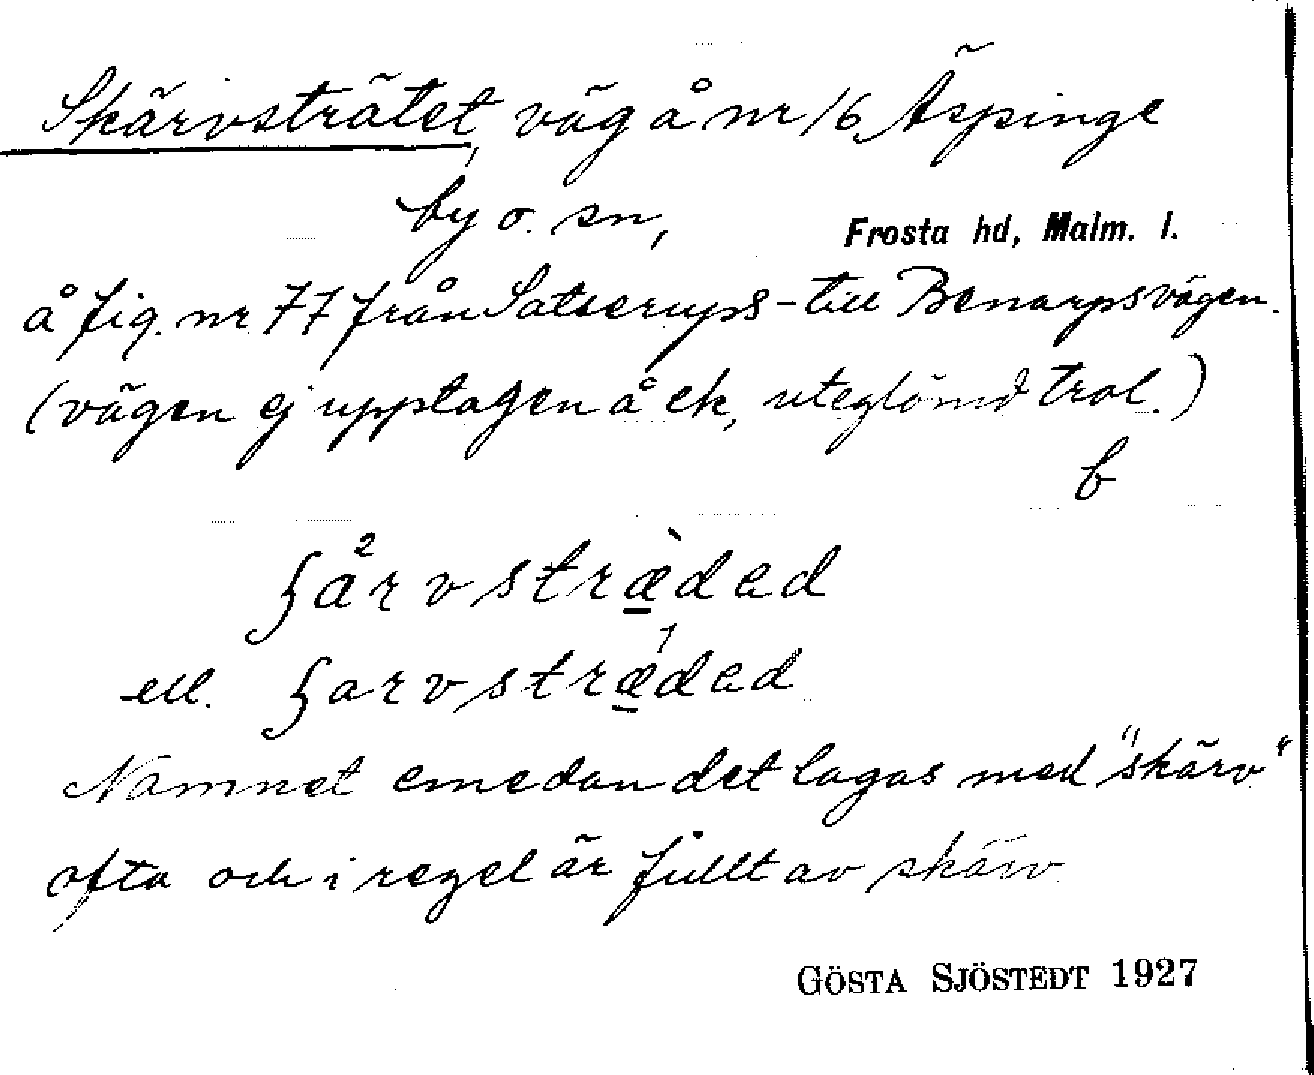 Skärvsträtet, väg å nr 16 Äspinge
by o. sn, Frosta hd, Malm. l.
å fig. nr 77 från Satserups- till Benarpsvägen.
(vägen ej upptagen å ek, uteglömd trol.)
b
ell.
Namnet emedan det lagas med "skärv"
ofta och i regel är fullt av skärv
GÖSTA SJÖSTEDT 1927